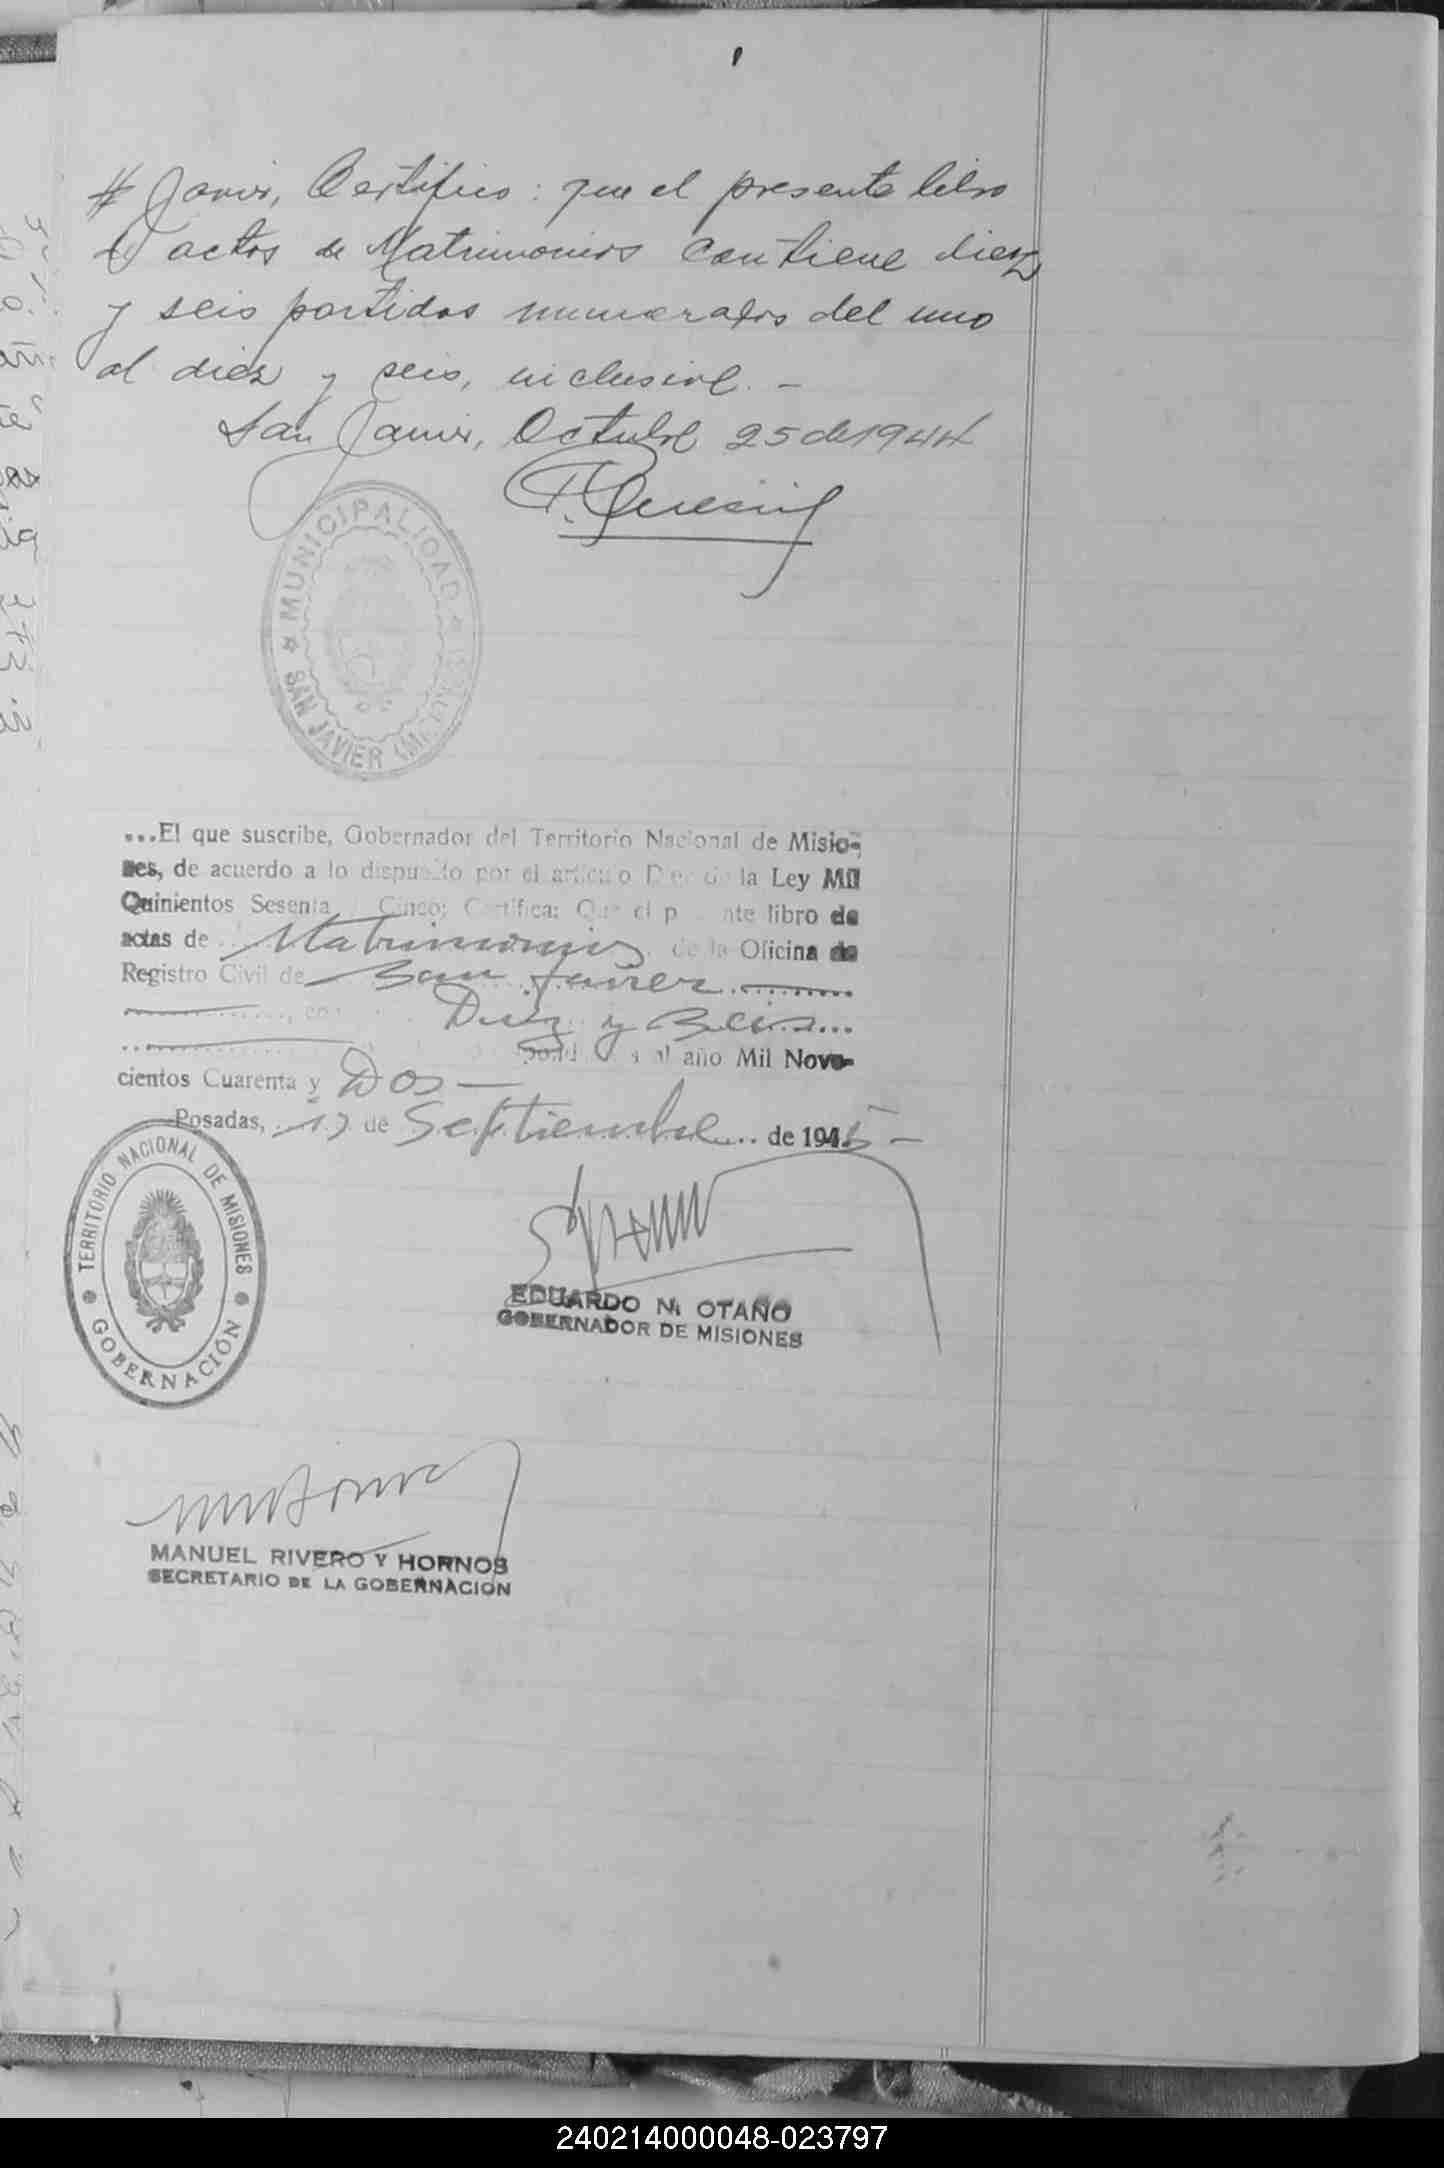 Javier, Certifico: que el presente libro
de actas de Matrimonios contiene diez
y seis partidas numerados del uno
al diez y seis, inclusive. –
San Javier, Octubre 25 de 1944
MUNICIPALIDAD
SAN JAVIER
...El que suscribe, Gobernador del Territorio Nacional de Misio-
nes, de acuerdo a lo dispuesto por el artículo Diez de la Ley Mil
Quinientos Sesenta Cinco; Certifica: Que el p nte libro de
actas de Matrimonios de la Oficina de
Registro Civil de San Javier
Diez y Seis...
al año Mil Nove-
cientos Cuarenta y Dos —
Posadas, 17 de Septiembre de 1945 –
TERRITORIO NACIONAL DE MISIONES
GOBERNACIÓN
EDUARDO N. OTAÑO
GOBERNADOR DE MISIONES
MANUEL RIVERO Y HORNOS
SECRETARIO DE LA GOBERNACION
240214000048-023797